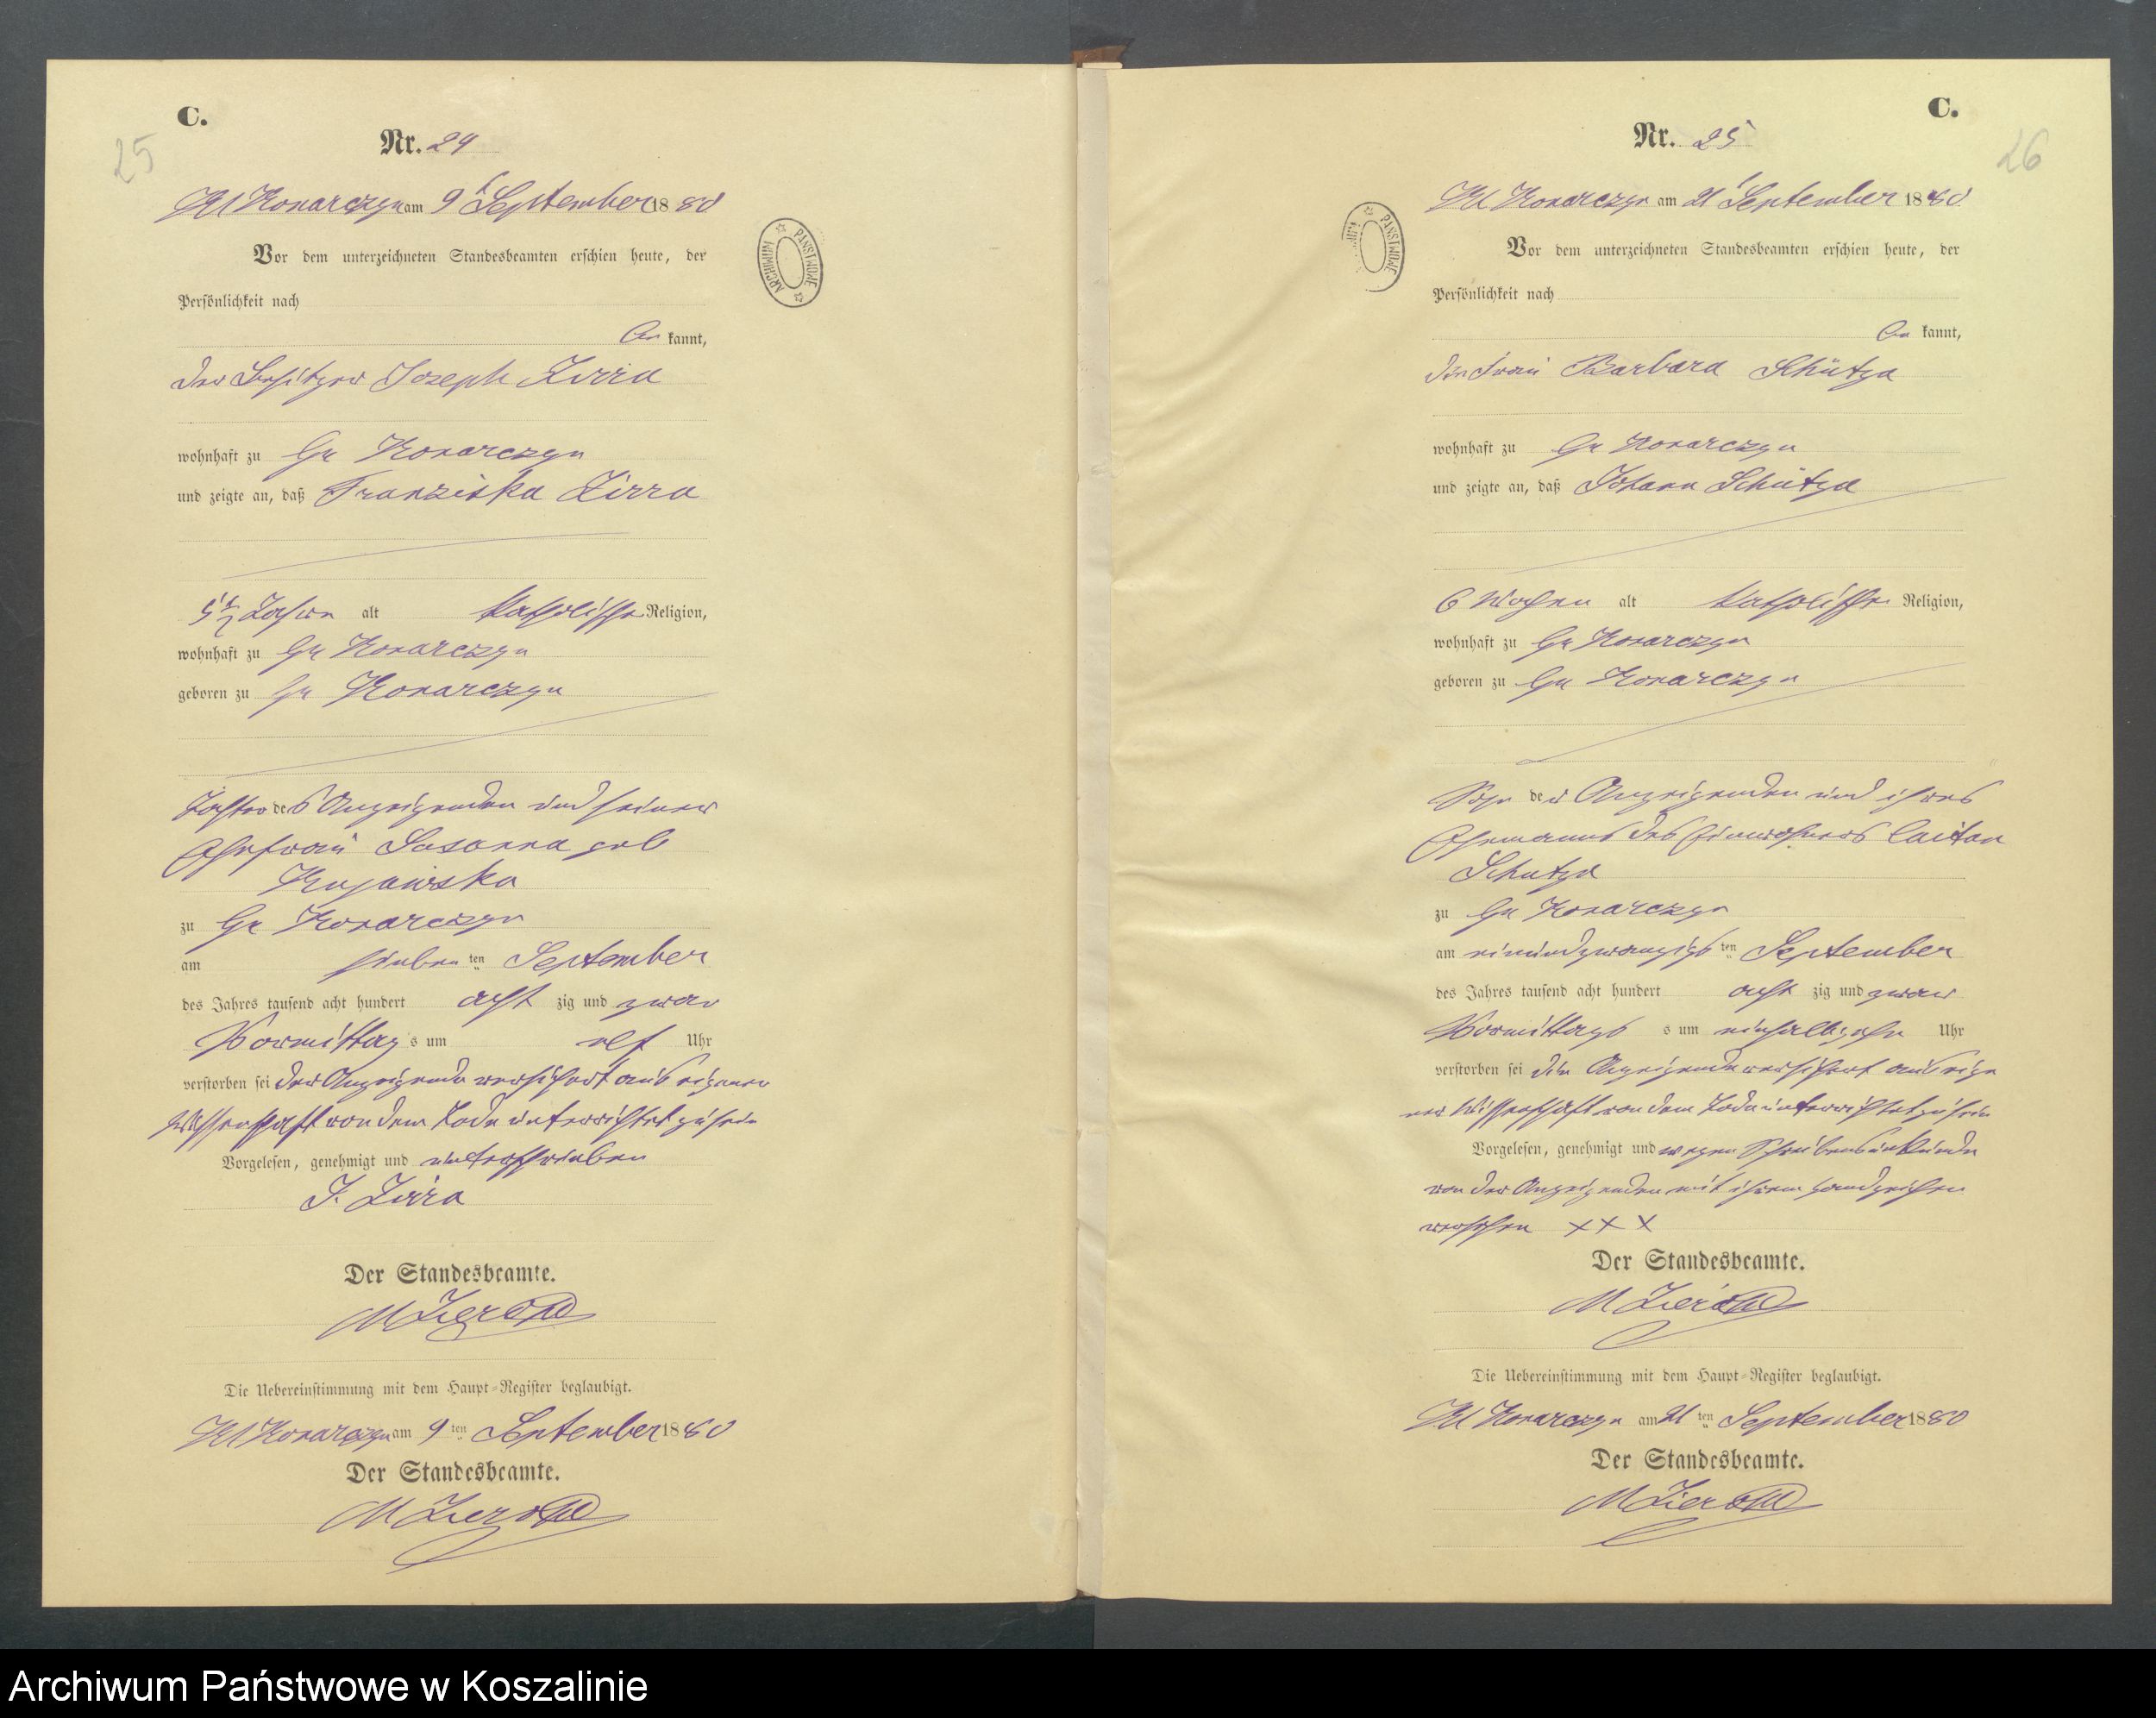 C.
25
Nr. 24
Kl Konarczyn am 9t September 1880
Vor dem unterzeichneten Standesbeamten erschien heute, der
Persönlichkeit nach
be kannt,
der Besitzer Joseph Zirra
wohnhaft zu Gr Konarczyn
und zeigte an, daß Franziska Zirra
Jahre alt katholischer Religion,
wohnhaft zu Gr Konarczyn
geboren zu Gr Konarczyn
Tochter des Anzeigenden und seiner
Ehefrau Susanna geb
Kujawska
zu Gr Konarczyn
am sieben ten September
des Jahres tausend acht hundert acht zig und zwar
Vormittag s um elf Uhr
verstorben sei der Anzeigende versichert aus eigener
Wissenschaft von dem Tode unterrichtet zu sein
Vorgelesen, genehmigt und unterschrieben
J. Zirra
Der Standesbeamte.
M Zierold
Die Uebereinstimmung mit dem Haupt-Register beglaubigt.
Kl Konarczyn am 9 ten September 1880
Der Standesbeamte.
M Zierold
ARCHIWUM PAŃSTWOWE
C.
26
Nr. 25
Kl Konarczyn am 21t September 1880
Vor dem unterzeichneten Standesbeamten erschien heute, der
Persönlichkeit nach
be kannt,
die Frau Barbara Schütza
wohnhaft zu Gr Konarczyn
und zeigte an, daß Johann Schütza
6 Wochen alt katholischer Religion,
wohnhaft zu Gr Konarczyn
geboren zu Gr Konarczyn
Sohn der Anzeigenden und ihres
Ehemanns des Einwohners Caitan
Schutza
zu Gr Konarczyn
am einundzwanzigs ten September
des Jahres tausend acht hundert acht zig und zwar
Vormittags s um Uhr
verstorben sei die Anzeigende versichert aus eige
ner Wissenschaft von dem Tode unterrichtet zu sein
Vorgelesen, genehmigt und wegen Schreibensunkunde
von der Anzeigenden mit ihrem Handzeichen
versehen XXX
Der Standesbeamte.
M Zierold
Die Uebereinstimmung mit dem Haupt-Register beglaubigt.
Kl Konarczyn am 21 ten September 1880
Der Standesbeamte.
M Zierold
PAŃSTWOWE
Archiwum Państwowe w Koszalinie